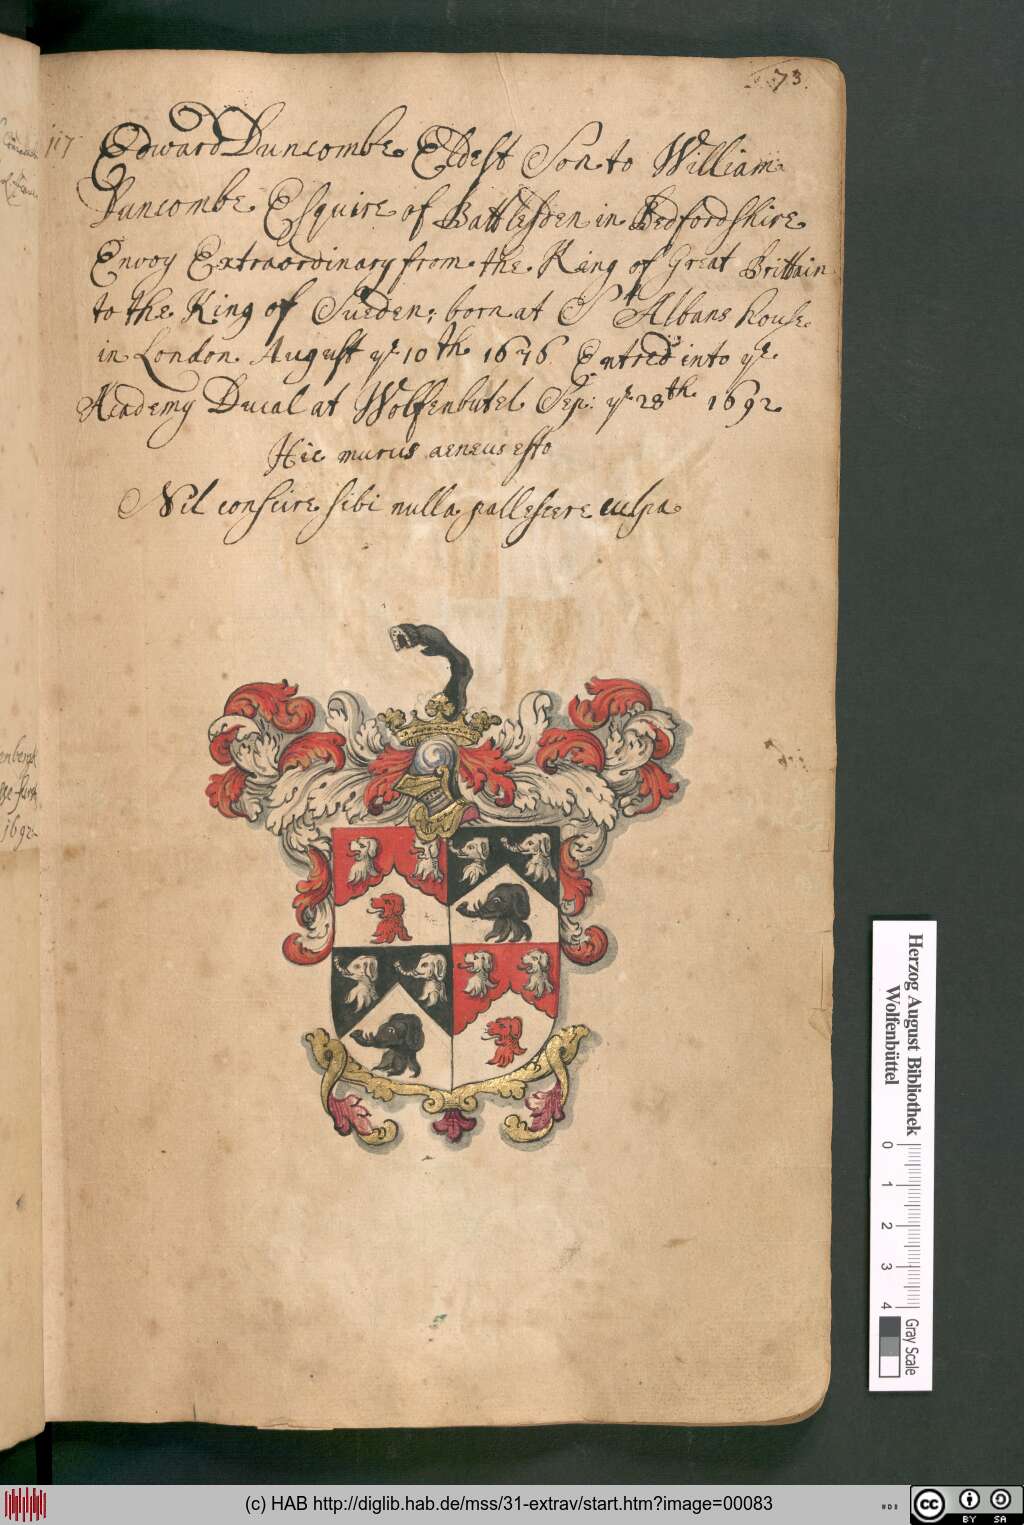 73.
117
Edward Duncombe Eldest Son to William
Duncombe Esquire of Battlesden in Bedfordshire
Envoy Extraordinary from the King of Great Brittain
to the King of Sueden; born at St Albans house
in London August ye 10th 1676 Entred into ye
Academy Ducal at Wolfenbutel Sep: ye 28th 1692
Hic murus aeneus esto
Nil conscire sibi nulla pallescere culpa
1692
Herzog August Bibliothek
Wolfenbüttel
0 1 2 3 4
Gray Scale
(c) HAB http://diglib.hab.de/mss/31-extrav/start.htm?image=00083
cc BY SA